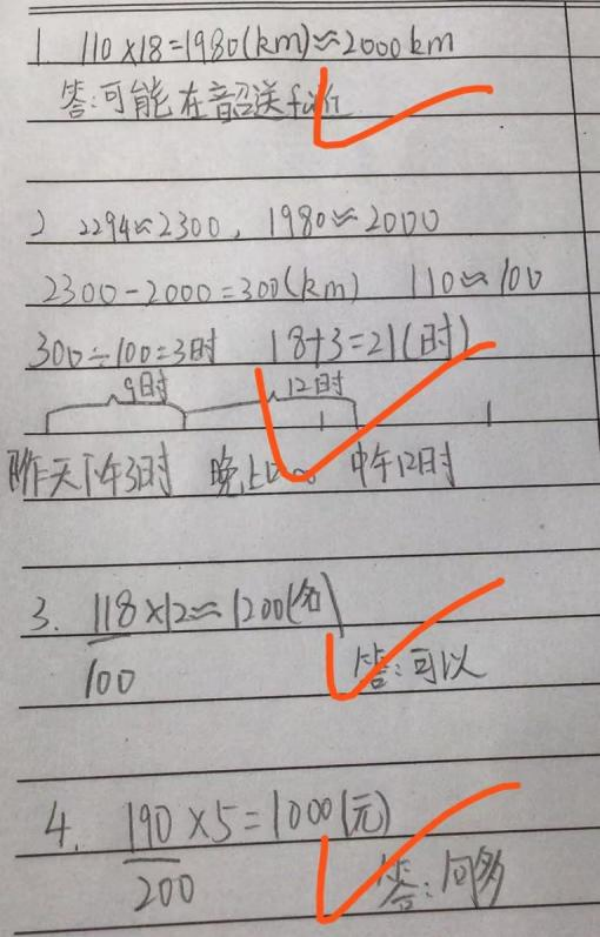 1 110×18=1980(km)≈2000km
答:可能在韶送
2 2294≈2300, 1980≈2000
2300-2000=300(km) 110≈100
300÷100=3时 18+3=21(时)
9时 12时
昨天下午3时 晚上 中午12时
3. 118×12≈1200(名)
100 答:可以
4. 190×5=1000(元)
200 答: